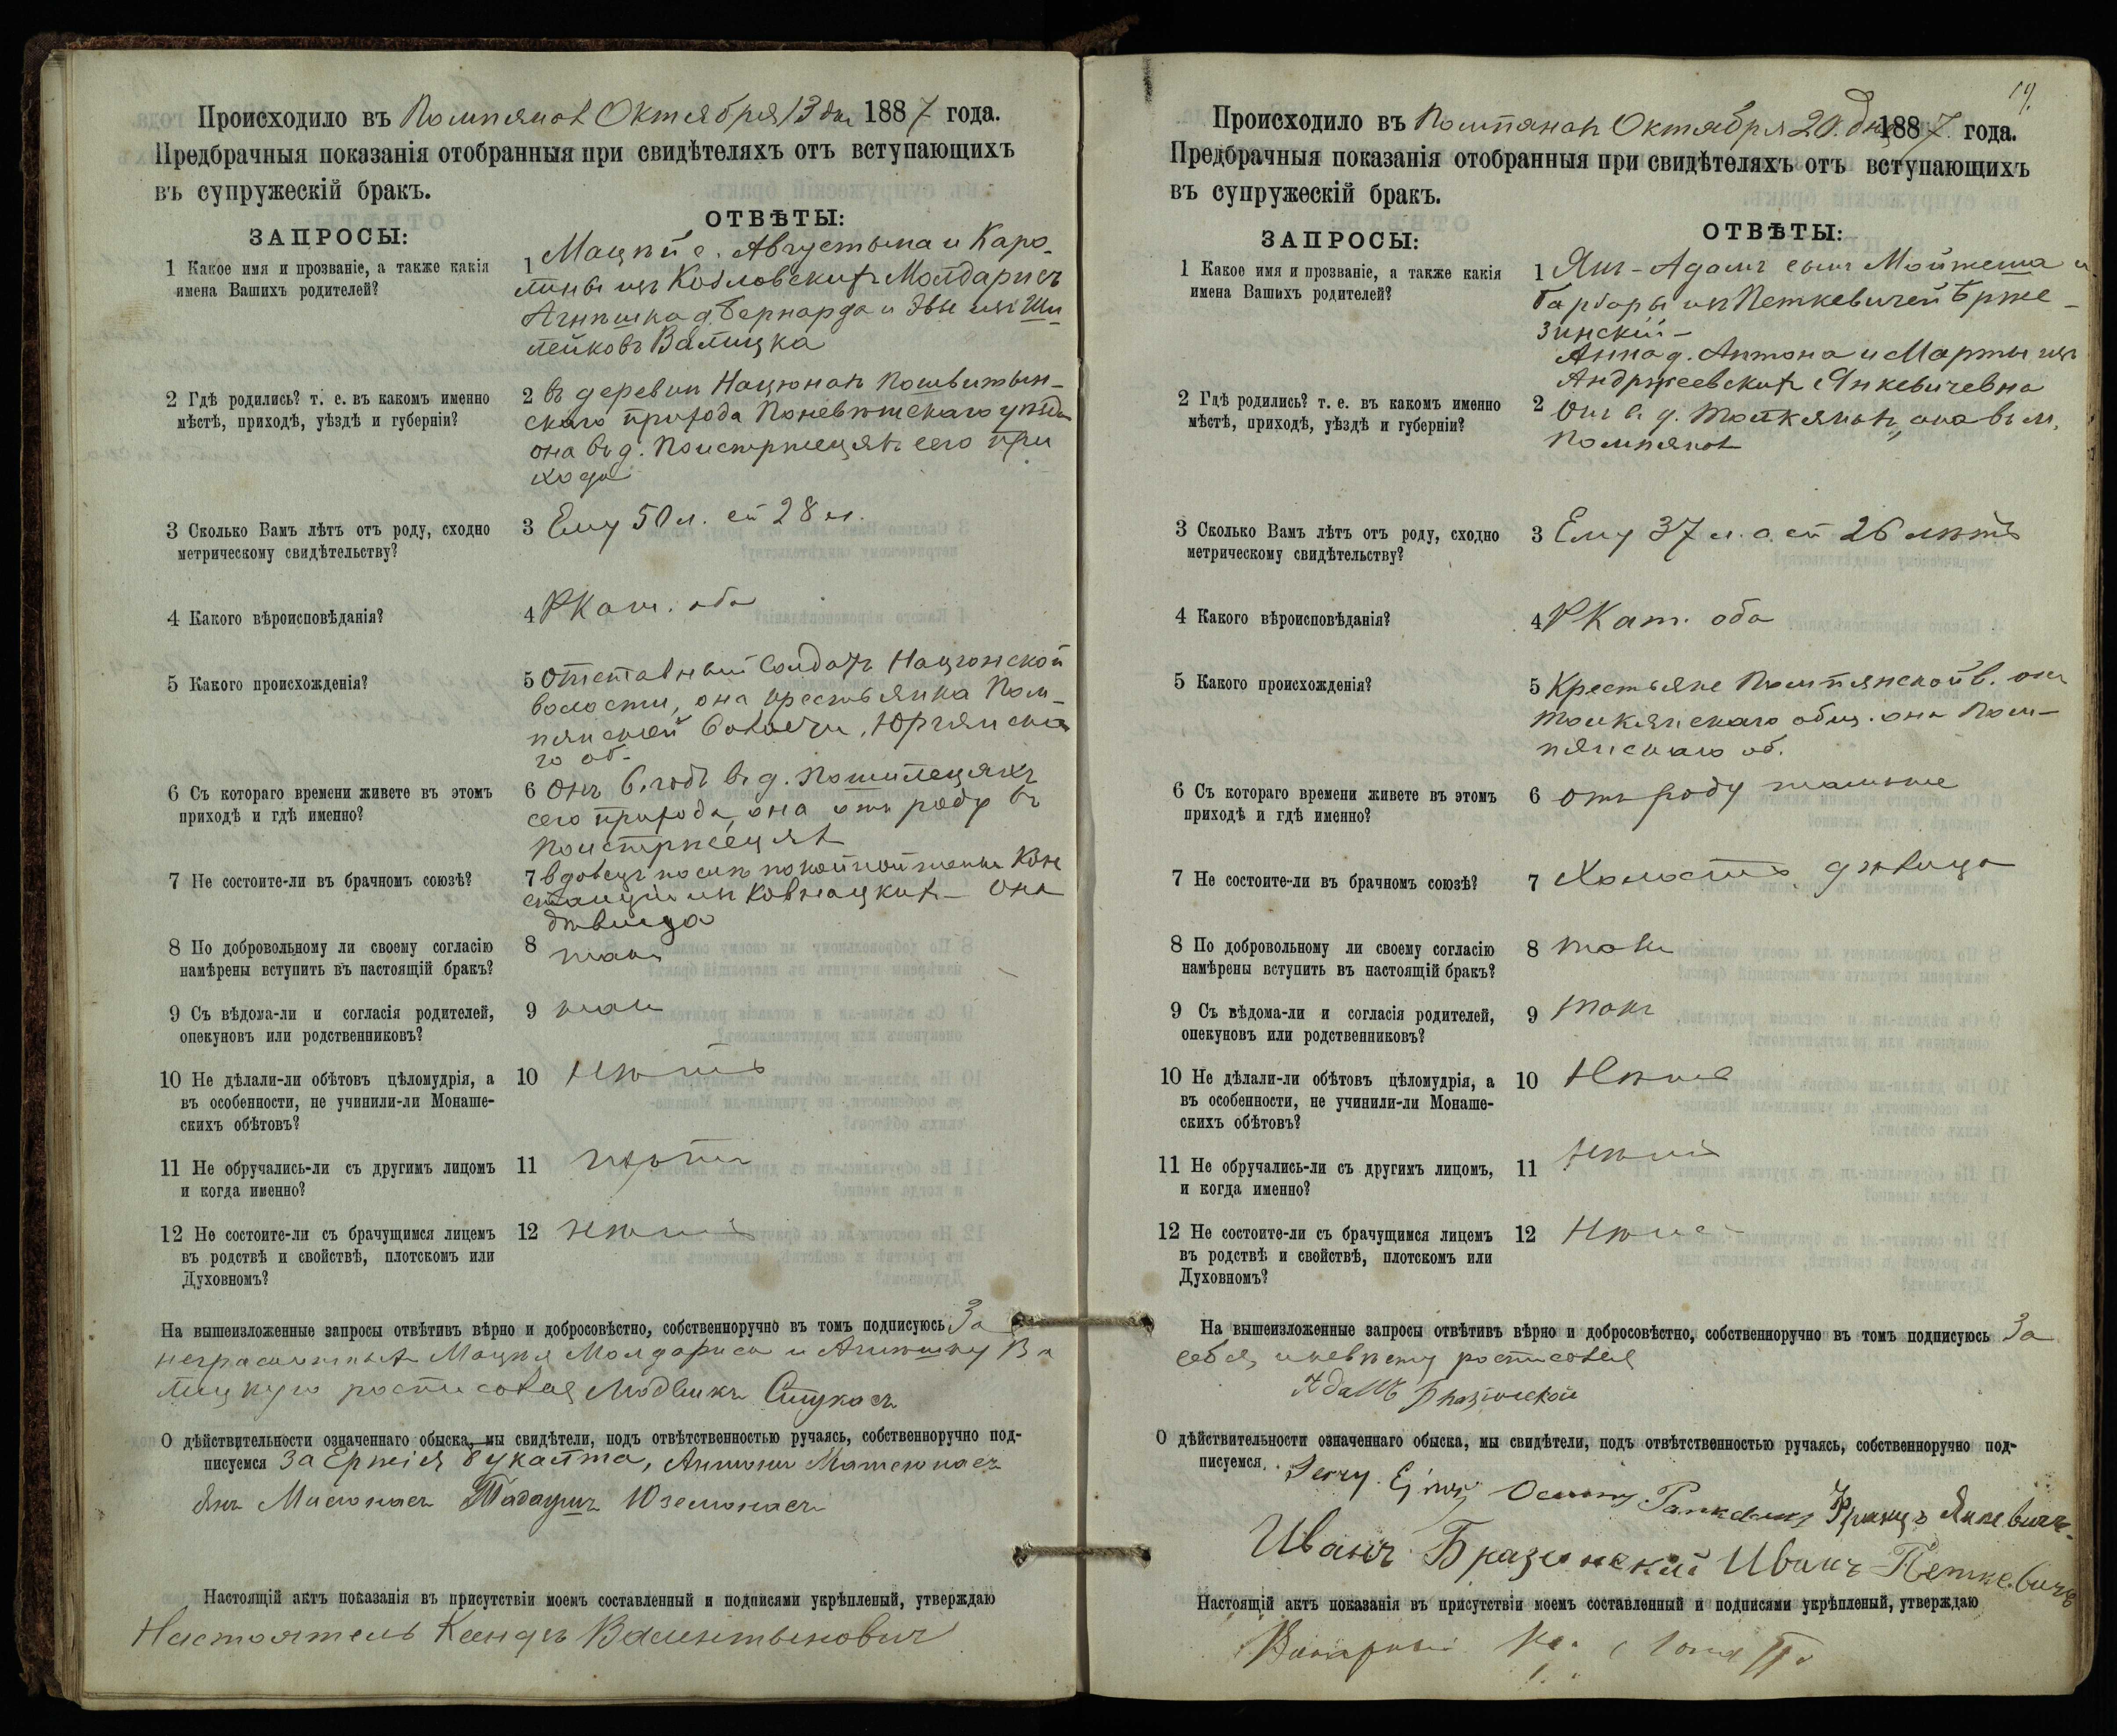 Происходило въ Помпянах Октября 13 дня 1887 года.
Предбрачныя показанія отобранныя при свидѣтеляхъ отъ вступающихъ
въ супружескій бракъ.
ЗАПРОСЫ:
ОТВѢТЫ:
1 Какое имя и прозваніе, а также какія
имена Вашихъ родителей?
1 Мацѣй с. Августына и Каро-
лины изъ Козловскихъ Молдарисъ
Агнѣшка д. Бернарда и Эвы изъ Ши
лейковъ Валицка
2 Гдѣ родились? т. е. въ какомъ именно
мѣстѣ, приходѣ, уѣздѣ и губерніи?
2 въ деревни Нацюнахъ
скаго прихода Поневѣжскаго уѣзда
она въ д. сего при
хода
3 Сколько Вамъ лѣтъ отъ роду, сходно
метрическому свидѣтельству?
3 Ему 50 л. ей 28 л.
4 Какого вѣроисповѣданія?
4 РКат. оба
5 Какого происхожденія?
5 Отставный Солдатъ Нацюнской
волости, она крестьянка Пом-
пянской волости, Юргянска
го об-
6 Съ котораго времени живете въ этомъ
приходѣ и гдѣ именно?
6 Онъ 6. годъ въ д.
сего прихода, она отъ роду въ
7 Не состоите-ли въ брачномъ союзѣ?
7 вдовецъ послѣ покойной жены Кон
станціи изъ Ковнацкихъ - Она
дѣвица
8 По добровольному ли своему согласію
намѣрены вступить въ настоящій бракъ?
8 такъ
9 Съ вѣдома-ли и согласія родителей,
опекуновъ или родственниковъ?
9 такъ
10 Не дѣлали-ли обѣтовъ цѣломудрія, а
въ особенности, не учинили-ли Монаше-
скихъ обѣтовъ?
10 Нѣтъ
11 Не обручались-ли съ другимъ лицомъ
и когда именно?
11 нѣтъ
12 Не состоите-ли съ брачущимся лицемъ
въ родствѣ и свойствѣ, плотскомъ или
Духовномъ?
12 нѣтъ
На вышеизложенные запросы отвѣтивъ вѣрно и добросовѣстно, собственноручно въ томъ подписуюсь За
неграмотныхъ Мацѣя Молдариса и Агнѣшку Ва
лицкую росписовался Людвикъ Стукасъ
О дѣйствительности означеннаго обыска, мы свидѣтели, подъ отвѣтственностью ручаясь, собственноручно под-
писуемся За Ержія Букайта, Антони Матеюнасъ
Янъ Мисюнасъ Тадаушъ Юземонасъ
Настоящій актъ показанія въ присутствіи моемъ составленный и подписями укрѣпленый, утверждаю
Настоятель Ксендзъ Валентыновичъ
19.
Происходило въ Помпянахъ Октября 20. дня 1887. года.
Предбрачныя показанія отобранныя при свидѣтеляхъ отъ вступающихъ
въ супружескій бракъ.
ЗАПРОСЫ:
ОТВѢТЫ:
1 Какое имя и прозваніе, а также какія
имена Вашихъ родителей?
1 Янъ-Адамъ сынъ Мойжеша и
Барбары изъ Петкевичей Брже-
зинскій -
Анна д. Антона и Марты изъ
Андржеевскихъ Янкевичевна
2 Гдѣ родились? т. е. въ какомъ именно
мѣстѣ, приходѣ, уѣздѣ и губерніи?
2 Онъ в. д. Толкянахъ, она въ м.
Помпянахъ
3 Сколько Вамъ лѣтъ отъ роду, сходно
метрическому свидѣтельству?
3 Ему 37 л. а ей 26 лѣтъ
4 Какого вѣроисповѣданія?
4 РКат. оба
5 Какого происхожденія?
5 Крестьяне Помпянской в. онъ
Толкянскаго общ. она Пом-
пянскаго об.
6 Съ котораго времени живете въ этомъ
приходѣ и гдѣ именно?
6 отъ роду тамже
7 Не состоите-ли въ брачномъ союзѣ?
7 Холостъ, дѣвица
8 По добровольному ли своему согласію
намѣрены вступить въ настоящій бракъ?
8 такъ
9 Съ вѣдома-ли и согласія родителей,
опекуновъ или родственниковъ?
9 такъ
10 Не дѣлали-ли обѣтовъ цѣломудрія, а
въ особенности, не учинили-ли Монаше-
скихъ обѣтовъ?
10 Нѣтъ
11 Не обручались-ли съ другимъ лицомъ,
и когда именно?
11 Нѣтъ
12 Не состоите-ли съ брачущимся лицемъ
въ родствѣ и свойствѣ, плотскомъ или
Духовномъ?
12 Нѣтъ
На вышеизложенные запросы отвѣтивъ вѣрно и добросовѣстно, собственноручно въ томъ подписуюсь За
себя, и невѣсту росписовался
Адамъ
О дѣйствительности означеннаго обыска, мы свидѣтели, подъ отвѣтственностью ручаясь, собственноручно под-
писуемся. Осипъ Францъ Янкевичъ-
Иванъ Бразинскій Иванъ Петкевичъ
Настоящій актъ показанія въ присутствіи моемъ составленный и подписями укрѣпленый, утверждаю
Викарный Кс.